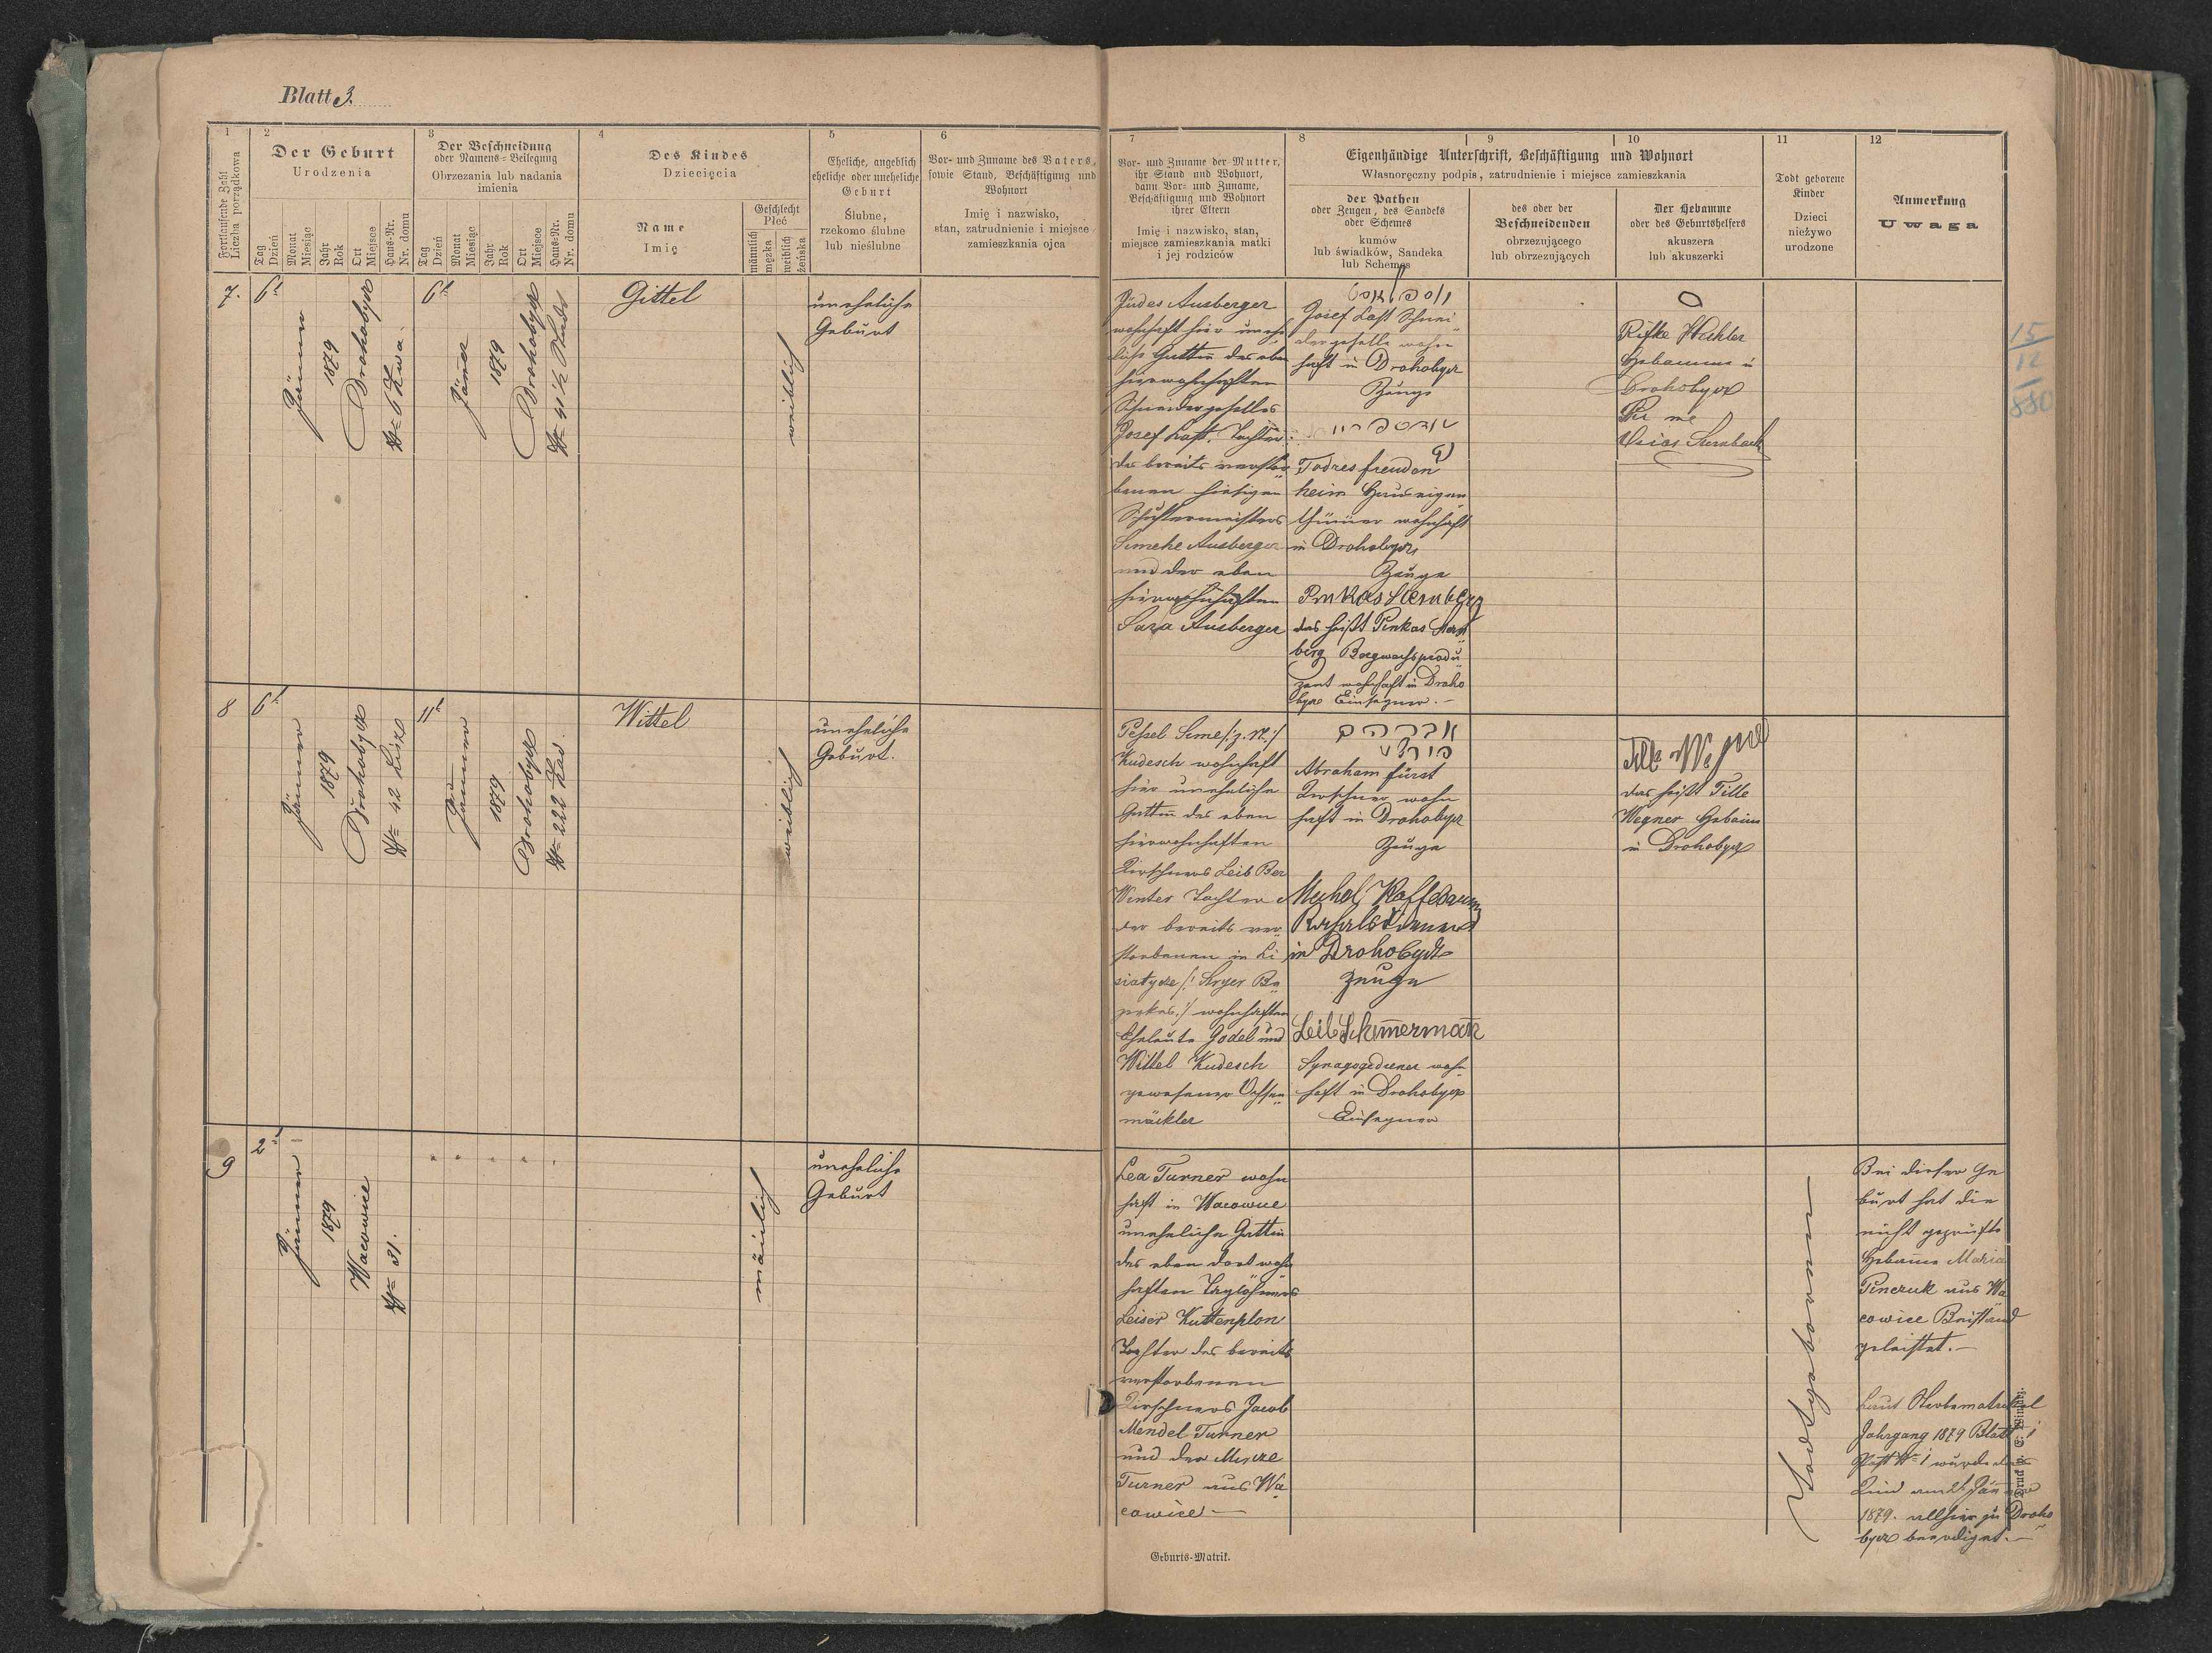 Blatt 3.
1
Fortlaufende Zahl
Liczba porządkowa
2
Der Geburt
Urodzenia
Tag
Dzień
Monat
Miesiąc
Jahr
Rok
Ort
Miejsce
Haus-Nr.
Nr. domu
3
Der Beschneidung
oder Namens-Beilegung
Obrzezania lub nadania
imienia
Tag
Dzień
Monat
Miesiąc
Jahr
Rok
Ort
Miejsce
Haus-Nr.
Nr. domu
4
Des Kindes
Dziecięcia
Name
Imię
Geschlecht
Płeć
männlich
męzka
weiblich
żeńska
5
Eheliche, angeblich
eheliche oder uneheliche
Geburt
Ślubne,
rzekomo ślubne
lub nieślubne
6
Vor- und Zuname des Vaters,
sowie Stand, Beschäftigung und
Wohnort
Imię i nazwisko,
stan, zatrudnienie i miejsce
zamieszkania ojca
7
Vor- und Zuname der Mutter,
ihr Stand und Wohnort,
dann Vor- und Zuname,
Beschäftigung und Wohnort
ihrer Eltern
Imię i nazwisko, stan,
miejsce zamieszkania matki
i jej rodziców
8 9 10
Eigenhändige Unterschrift, Beschäftigung und Wohnort
Własnoręczny podpis, zatrudnienie i miejsce zamieszkania
der Pathen
oder Zeugen, des Sandeks
oder Schemes
kumów
lub świadków, Sandeka
lub Schemes
des oder der
Beschneidenden
obrzezującego
lub obrzezujących
Der Hebamme
oder des Geburtshelfers
akuszera
lub akuszerki
11
Todt geborene
Kinder
Dzieci
nieżywo
urodzone
12
Anmerkung
Uwaga
7.
6t
Jänner
1879
Drohobycz
N= 6 Zwa.
6t
Jäner
1879
Drohobycz
Gittel
weiblich
uneheliche
Geburt
Judes Ausberger
wohnhaft hier unehe
liche Gattin des eben
hierwohnhaften
Schneidergeselles
Josef Last, Tochter
des bereits verstor
benen hiesigen
Schustermeisters
Simche Ausberger
und der eben
hierwohnhaften
Sara Ausberger
Josef Last Schnei
dergeselle wohn
haft in Drohobycz
Zeuge
Todres freuden
heim Hauseigen
thümer wohnhaft
in Drohobycz
Zeuge
Pinkas Sternberg
das heißt Pinkas Stern
berg Bergwachsprodu
zent wohnhaft in Droho
bycz Einsegner.-
Rifke Wachler
Hebamme in
Drohobycz
Sternbach
15
12
880
8
6t
Jänner
1879
Drohobycz
N= 42 Lisz
11t
Jänner
1879
Drohobycz
N= 222 Zas
Wittel
weiblich
uneheliche
Geburt.
Pessel Sime /:z. N.:/
Kudesch wohnhaft
hier uneheliche
Gattin des eben
hierwohnhaften
Kirschners Leib Ber
Winter Tochter
der bereits ver
storbenen in Li
siatycze /: Stryer Be
zirkes:/ wohnhaften
Eheleute Godel und
Wittel Kudesch
gewesener Ochsen
mäckler
אברהם
Abraham fürst
Kirschner wohn
haft in Drohobycz
Zeuge
Muhel Kaffebaum
Kahalsdiener
in Drohobycz
Zeuge
Leib Schimmermann
Synagogediener wohn
haft in Drohobycz
Einsegner
das heißt Tille
Wegner Hebame
in Drohobycz
9
2t
Jänner
1879
Wacowice
N= 31.
mänlich
uneheliche
Geburt
Lea Turner wohn
haft in Wacowice
uneheliche Gattin
des eben dort wohn
haften Taglöhners
Leiser Kuttenplon
Tochter des bereits
verstorbenen
Kirschners Jacob
Mendel Turner
und der Mircze
Turner aus Wa
cowice -
Todtgeboren
Bei dieser Ge
burt hat die
nicht geprüfte
Hebamme Maria
Pinczuk aus Wa
cowice Beistand
geleistet.-
Laut Sterbematrikel
Jahrgang 1879 Blatt 1
Post N= 1 wurde das
Kind am 2. Jänner
1879. allhier zu Droho
bycz beerdiget.-
Geburts-Matrik.